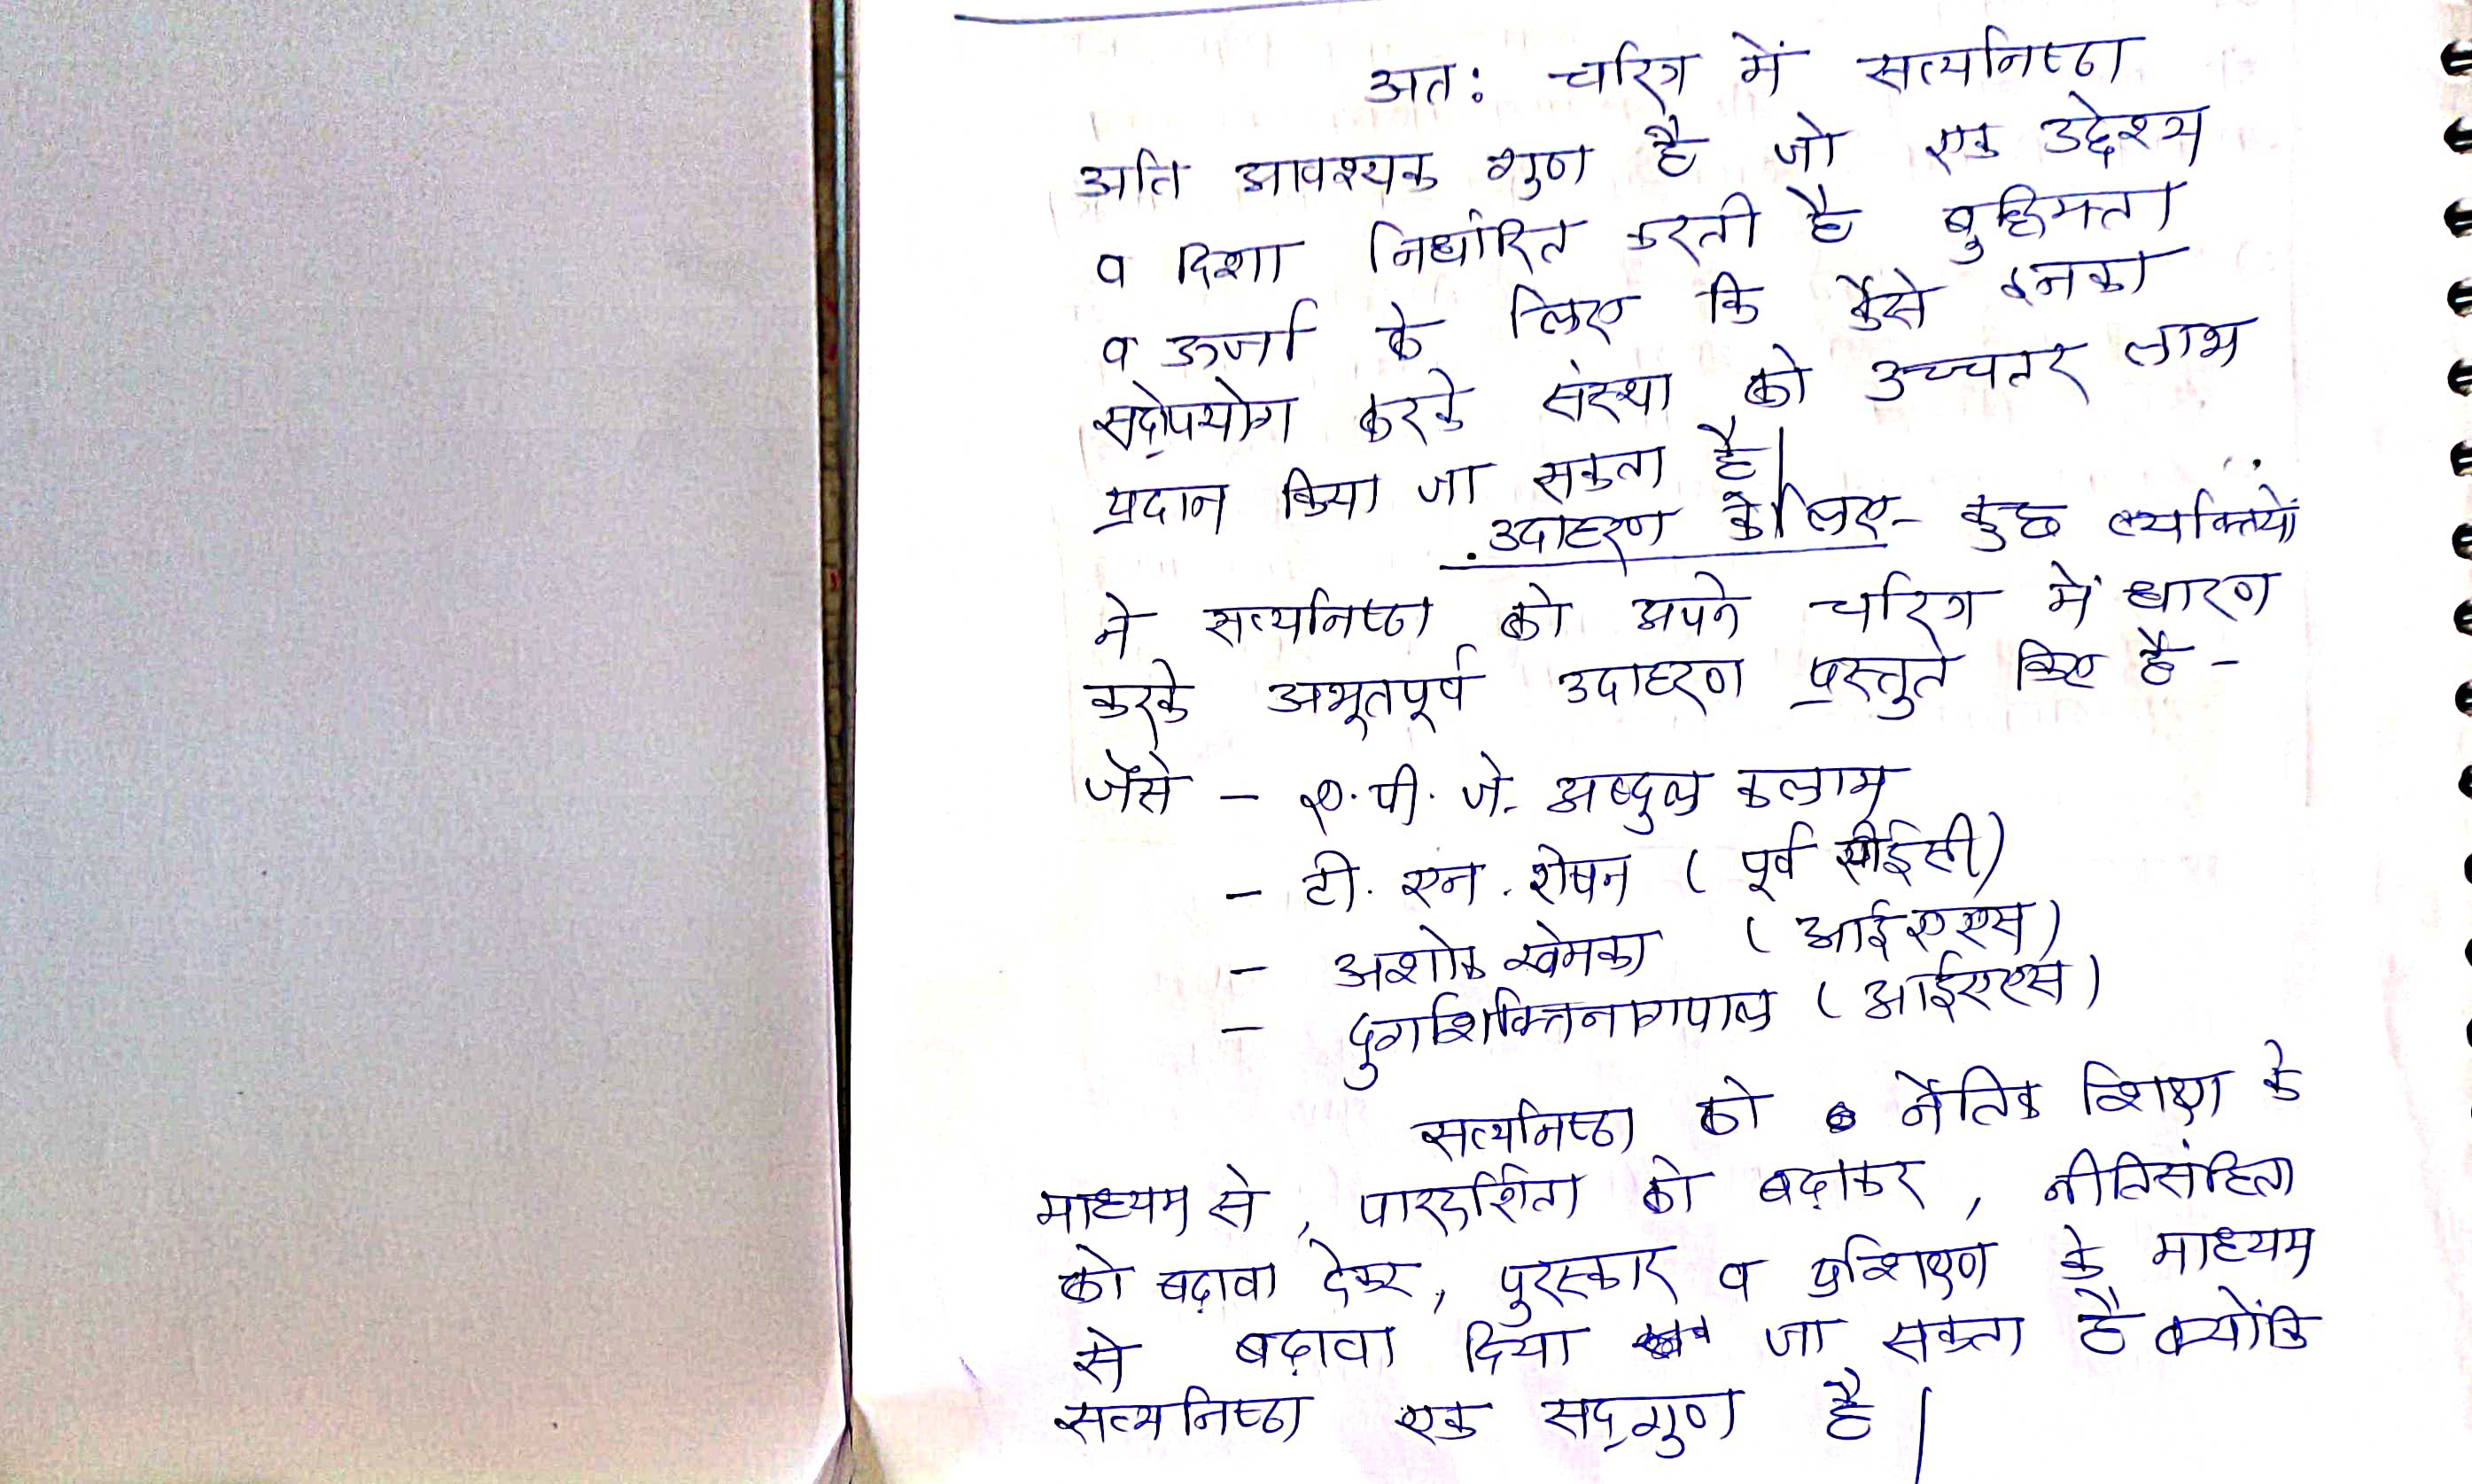 अत: चरित्र में सत्यनिष्ठा
अति आवश्यक गुण है जो एक उद्देश्य
व दिशा निर्धारित करती है बुद्धिमता
व ऊर्जा के लिए कि कैसे इनका
सद्दोपयोग करके संस्था को उच्चतर लाभ
प्रदान किया जा सकता है|
उदाहरण के लिए - कुछ व्यक्तियों
ने सत्यनिष्ठा को अपने चरित्र में धारण
करके अभूतपूर्व उदाहरण प्रस्तुत किए है -
जैसे - ए. पी. जे. अब्दुल कलाम
- टी. एन. शेषन ( पूर्व सीईसी)
- अशोक खेमका ( आईएएस)
- दुर्गाशक्तिनागपाल ( आईएएस)
सत्यनिष्ठा को नैतिक शिक्षा के
माध्यम से, पारदर्शिता को बढ़ाकर, नीतिसंहिता
को बढ़ावा देकर, पुरस्कार व प्रशिक्षण के माध्यम
से बढ़ावा दिया जा सकता है क्योंकि
सत्यनिष्ठा एक सद्गुण है|